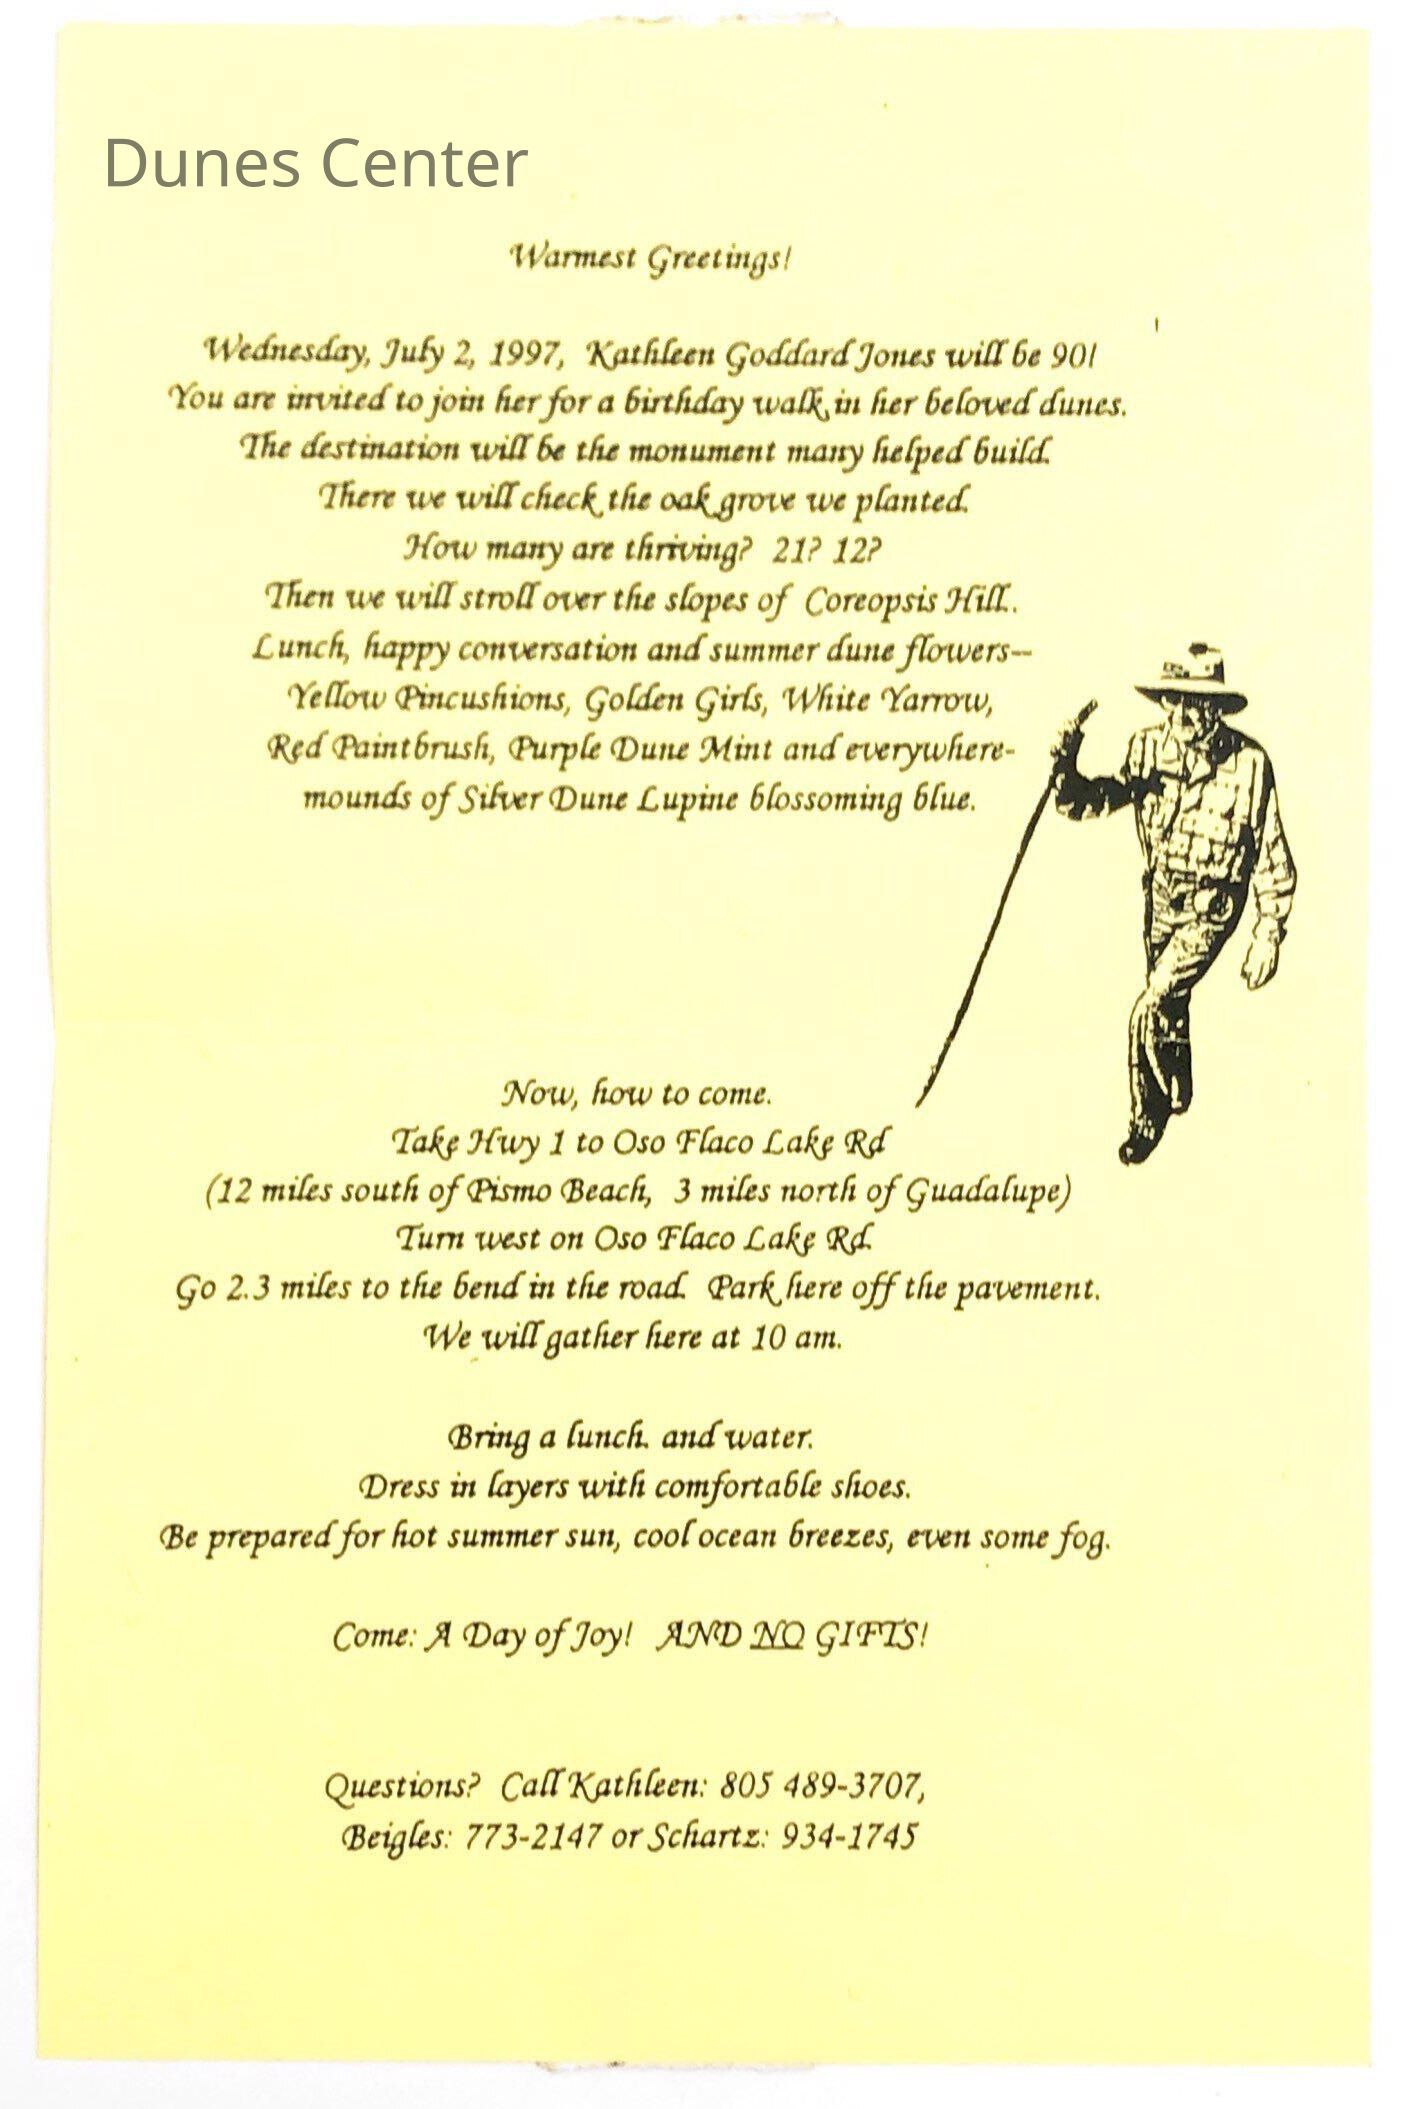 Dunes Center
Warmest Greetings!
Wednesday, July 2, 1997, Kathleen Goddard Jones will be 90!
You are invited to join her for a birthday walk in her beloved dunes.
The destination will be the monument many helped build.
There we will check the oak grove we planted.
How many are thriving? 21? 12?
Then we will stroll over the slopes of Coreopsis Hill.
Lunch, happy conversation and summer dune flowers--
Yellow Pincushions, Golden Girls, White Yarrow,
Red Paintbrush, Purple Dune Mint and everywhere-
mounds of Silver Dune Lupine blossoming blue.
Now, how to come.
Take Hwy 1 to Oso Flaco Lake Rd
(12 miles south of Pismo Beach, 3 miles north of Guadalupe)
Turn west on Oso Flaco Lake Rd.
Go 2.3 miles to the bend in the road. Park here off the pavement.
We will gather here at 10 am.
Bring a lunch. and water.
Dress in layers with comfortable shoes.
Be prepared for hot summer sun, cool ocean breezes, even some fog.
Come: A Day of Joy! AND NO GIFTS!
Questions? Call Kathleen: 805 489-3707,
Beigles: 773-2147 or Schartz: 934-1745